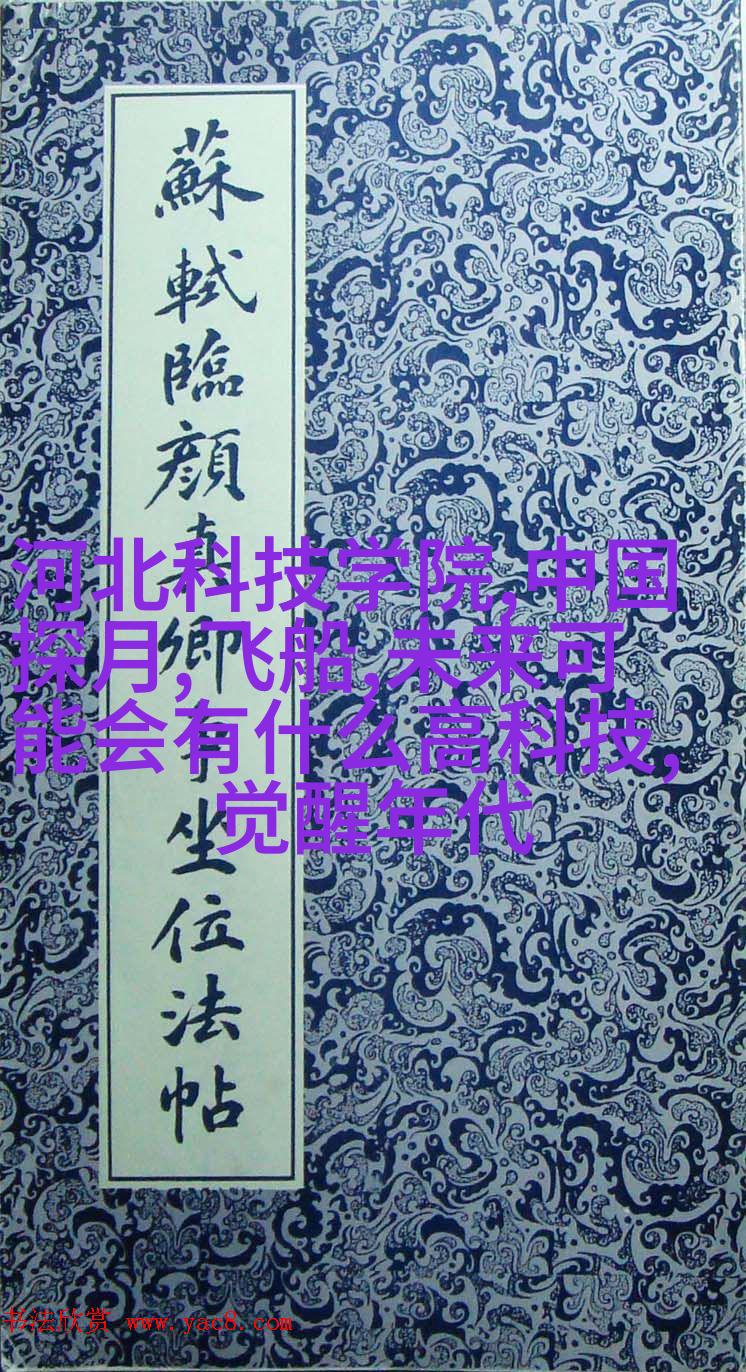 蘇軾臨顏真卿爭坐位法帖
河北科技学院,中国
探月,飞船,未来可
能会有什么高科技,
觉醒年代
书法欣赏 www.yac8.com